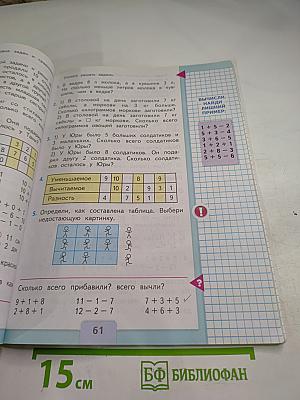 8 л молока, а в кувшине 3 л.
На сколько меньше литров молока в кувшине, чем в ведре?
2. 1) В столовой на день заготовили 7 кг
свёклы, а моркови на 3 кг больше.
Сколько килограммов моркови заготовили?
2) В столовой на день заготовили 7 кг
свёклы и □ кг моркови. Сколько всего
килограммов овощей заготовили?
3. 1) У Юры было 5 больших солдатиков и
маленьких. Сколько всего солдатиков
было у Юры?
2) У Юры было 8 солдатиков. Он подарил
другу 2 солдатика. Сколько солдатиков
осталось у Юры?
4. Уменьшаемое 9 10 8 9
Вычитаемое 10 2 9 3 1
Разность 4 7 5 1 9
5. Определи, как составлена таблица. Выбери
недостающую картинку.
Сколько всего прибавили? всего вычли?
9+1+8 11-1-7 7+3+5
2+8+1 12-2-7 4+6+3
61
ВЫЧИСЛИ,
НАЙДИ
ЛИШНИЙ
ПРИМЕР
1+5-2
5+3-4
3+6-5
1+2+1
2+8-3
5+5-6
!
?
15 см
БФ БИБЛИОФАН